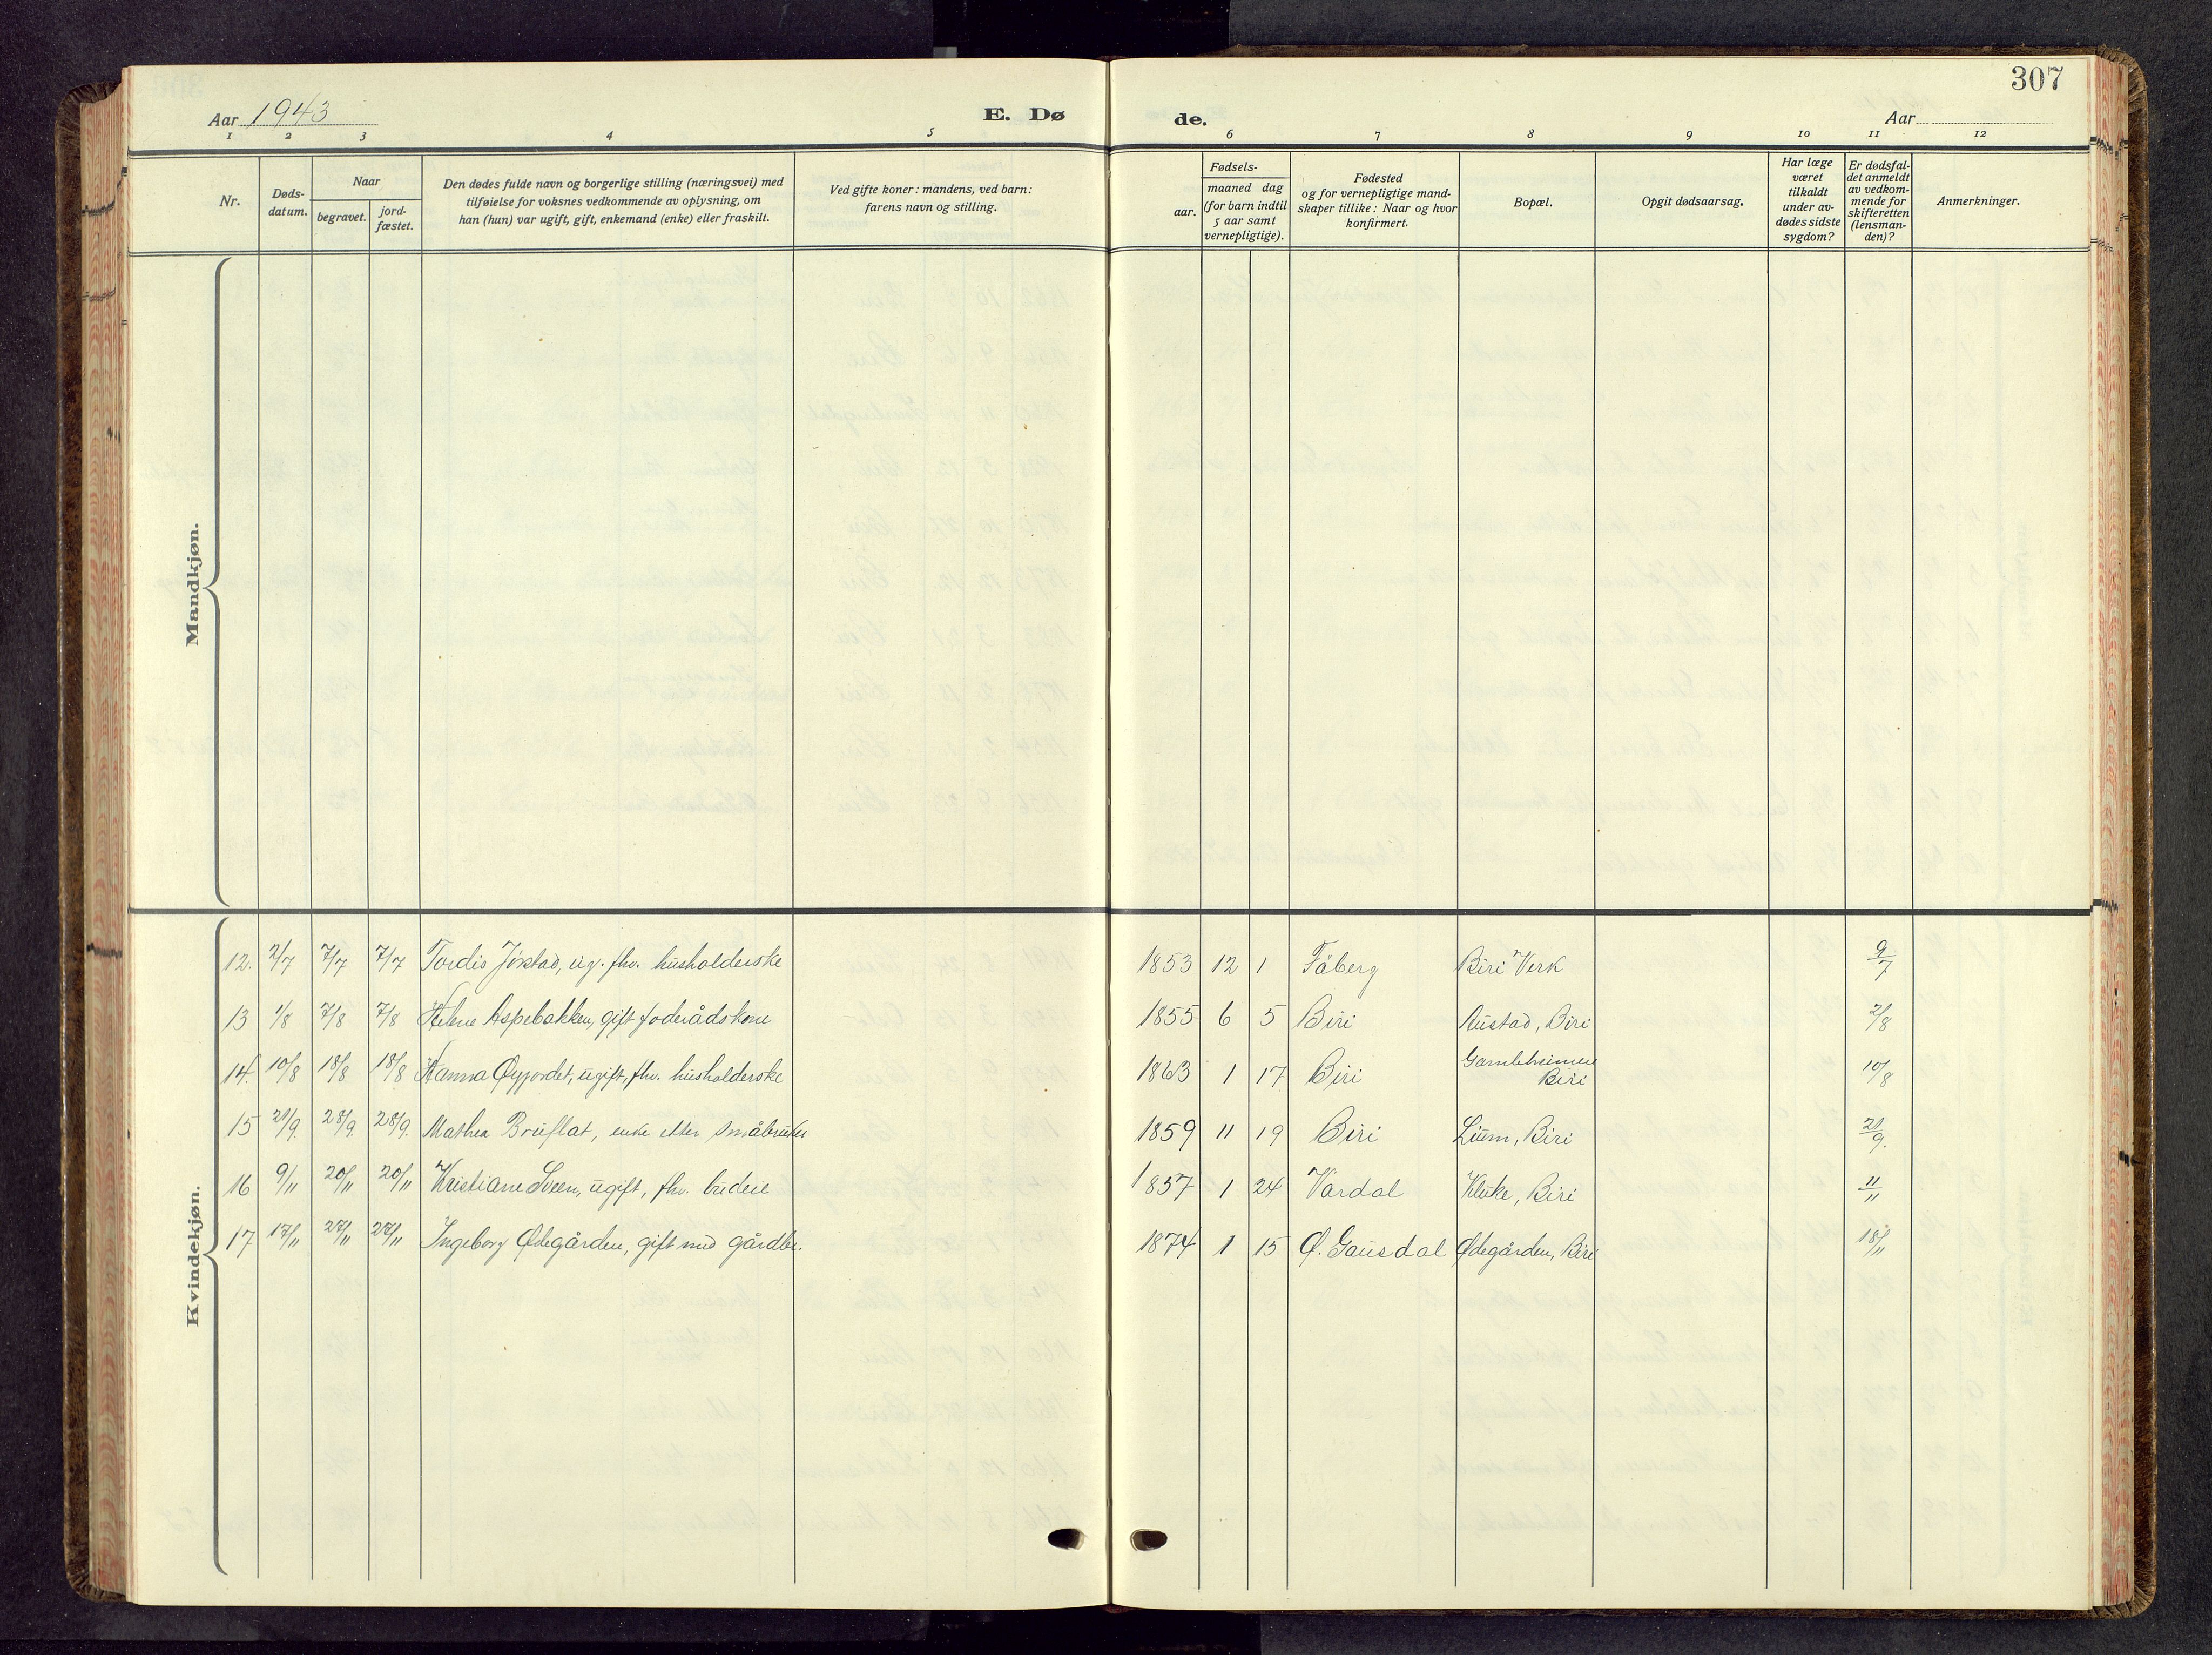 307
Aar 1943
E. Dø
de.
Aar
1 2 3 4 5 6 7 8 9 10 11 12
Nr.
Døds-
datum.
Naar
begravet.
jord-
fæstet.
Den dødes fulde navn og borgerlige stilling (næringsvei) med
tilføielse for voksnes vedkommende av oplysning, om
han (hun) var ugift, gift, enkemand (enke) eller fraskilt.
Ved gifte koner: mandens, ved barn:
farens navn og stilling.
Fødsels-
aar.
maaned dag
(for barn indtil
5 aar samt
vernepligtige).
Fødested
og for vernepligtige mand-
skaper tillike: Naar og hvor
konfirmert.
Bopæl.
Opgit dødsaarsag.
Har læge
været
tilkaldt
under av-
dødes sidste
sygdom?
Er dødsfal-
det anmeldt
av vedkom-
mende for
skifteretten
(lensman-
den)?
Anmerkninger.
Mandkjøn.
Kvindekjøn.
12. 2/7 7/7 7/7 Tordis Jørstad, ug. fhv. husholderske 1853 12 1 Fåberg Biri Verk 9/7
13 1/8 7/8 7/8 Helene Aspebakken, gift foderådskone 1855 6 5 Biri Austad, Biri 2/8
14. 10/8 18/8 18/8 Hanna Øyjordet, ugift, fhv. husholderske 1863 1 17 Biri Gamleheimen Biri 10/8
15 21/9. 28/9. 28/9. Mathea Bruflat, enke etter småbruker 1859 11 19 Biri Lium, Biri 21/9.
16 9/11 20/11 20/11 Kristiane Sveen, ugift, fhv. budeie 1857 1 24 Vardal Kluke, Biri 11/11
17 17/11 27/11 27/11 Ingeborg Ødegården, gift med gårdbr. 1874 1 15 Ø. Gausdal Ødegården, Biri 18/11